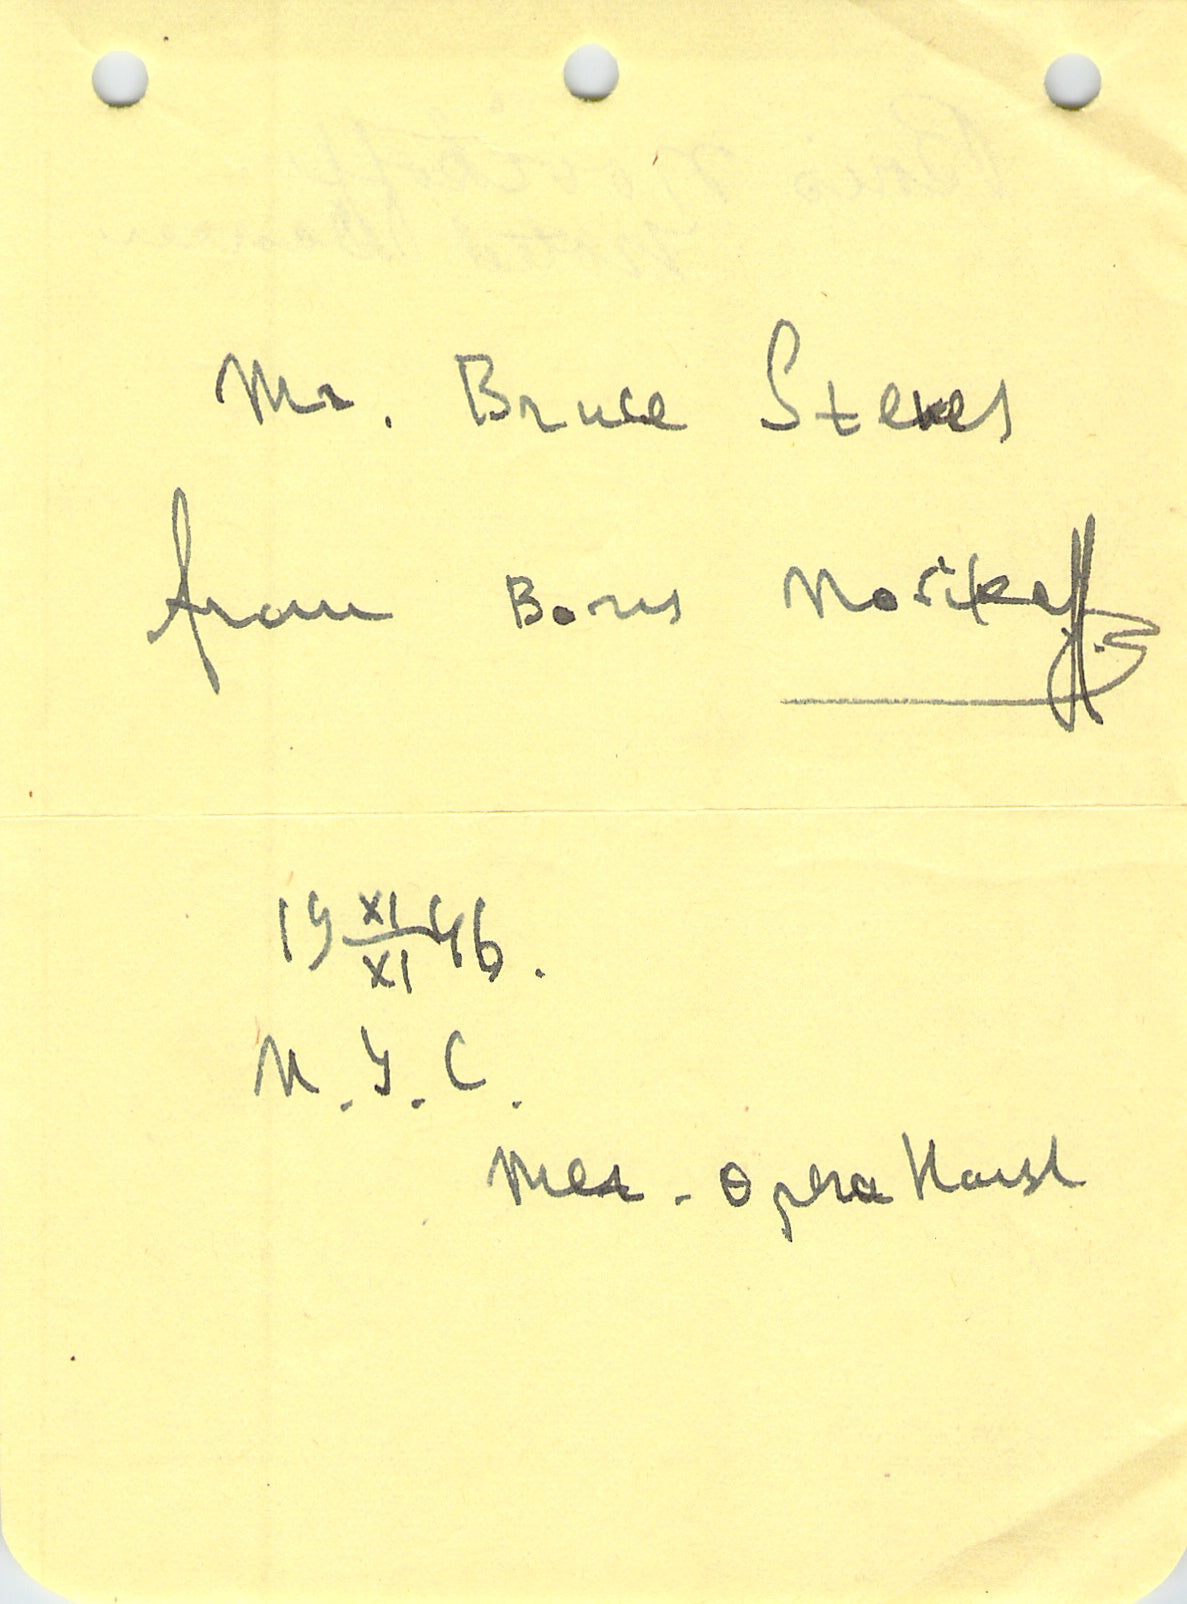 Mr. Bruce
from Boris Novikoff
19 XI/XI 46.
N.Y.C.
Met. Opera House